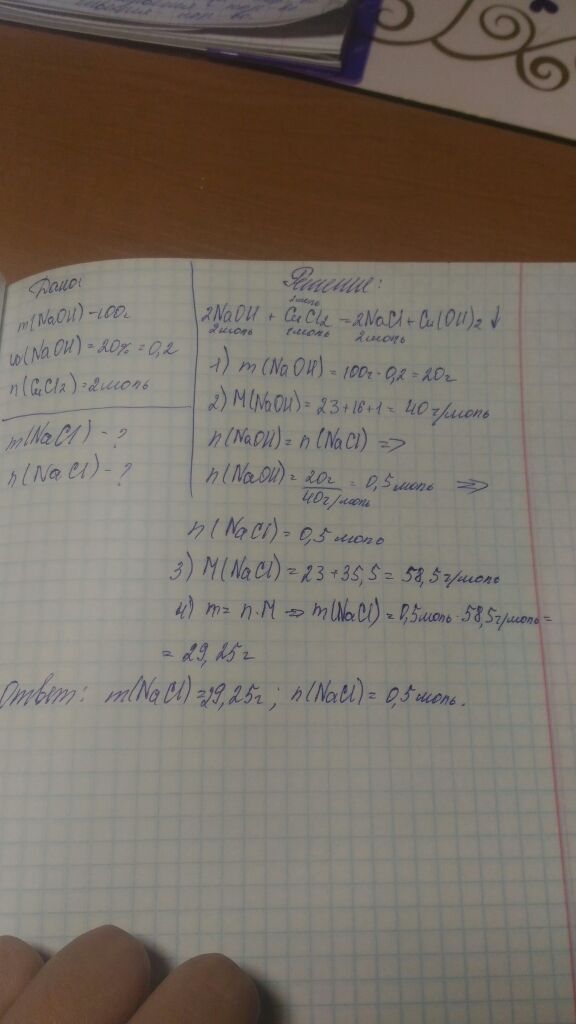 Дано:
m(NaOH) - 100г
ω(NaOH) = 20% = 0,2
n(CuCl2) = 2моль
m(NaCl) - ?
n(NaCl) - ?
Решение:
2моль
2NaOH + CuCl2 = 2NaCl + Cu(OH)2 ↓
2моль 1моль 2моль
1) m(NaOH) = 100г · 0,2 = 20г
2) M(NaOH) = 23+16+1 = 40 г/моль
n(NaOH) = n(NaCl) =>
n(NaOH) = 20г/40г/моль = 0,5 моль =>
n(NaCl) = 0,5 моль
3) M(NaCl) = 23+35,5 = 58,5г/моль
4) m = n·M => m(NaCl) = 0,5моль · 58,5г/моль =
= 29,25г
Ответ: m(NaCl) = 29,25г; n(NaCl) = 0,5 моль.